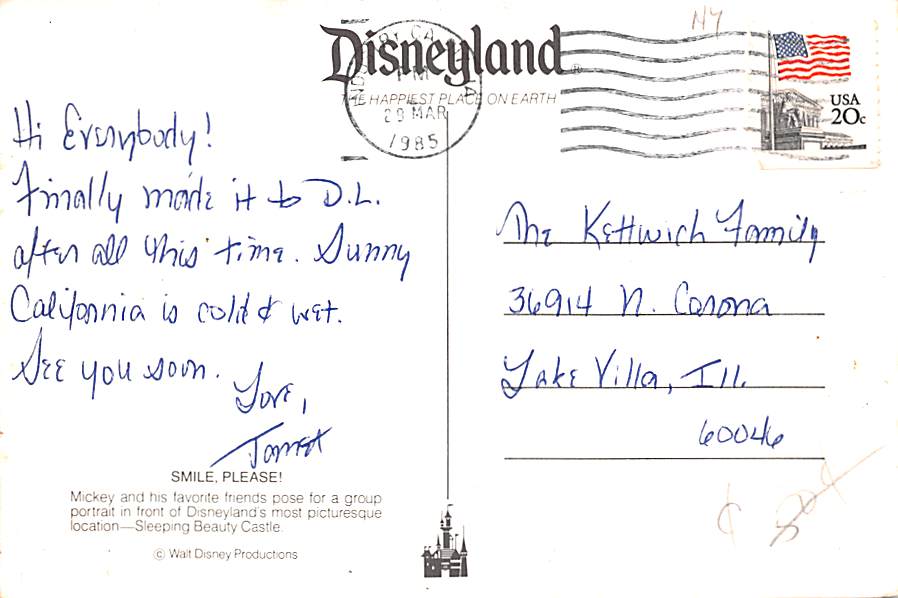 NY
Disneyland®
THE HAPPIEST PLACE ON EARTH
PM
29 MAR
1985
USA
20c
Hi Everybody!
Finally made it to D.L.
after all this time. Sunny
California is cold & wet.
See you soon.
Love,
Janet
The Kettwich Family
36914 N. Corona
Lake Villa, Ill.
60046
SMILE, PLEASE!
Mickey and his favorite friends pose for a group
portrait in front of Disneyland's most picturesque
location—Sleeping Beauty Castle.
© Walt Disney Productions